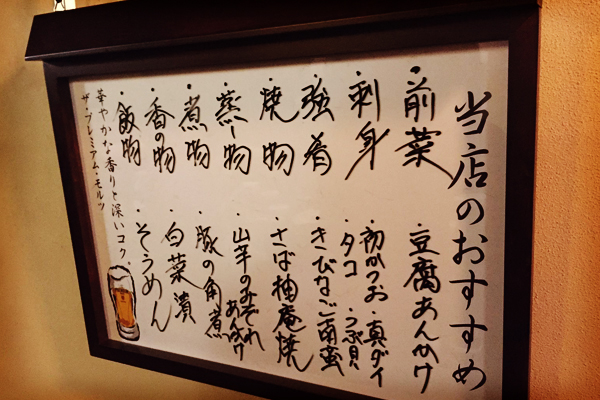 当店のおすすめ
・前菜 ・豆腐あんかけ
・刺身 ・初かつお・真ダイ
・タコ ・つぶ貝
・強肴 ・きびなご南蛮
・焼物 ・さば柚庵焼
・蒸し物 ・山芋のみぞれあんかけ
・煮物 ・豚の角煮
・香の物 ・白菜漬
・飯物 ・そうめん
華やかな香りと深いコク。
ザ・プレミアム・モルツ